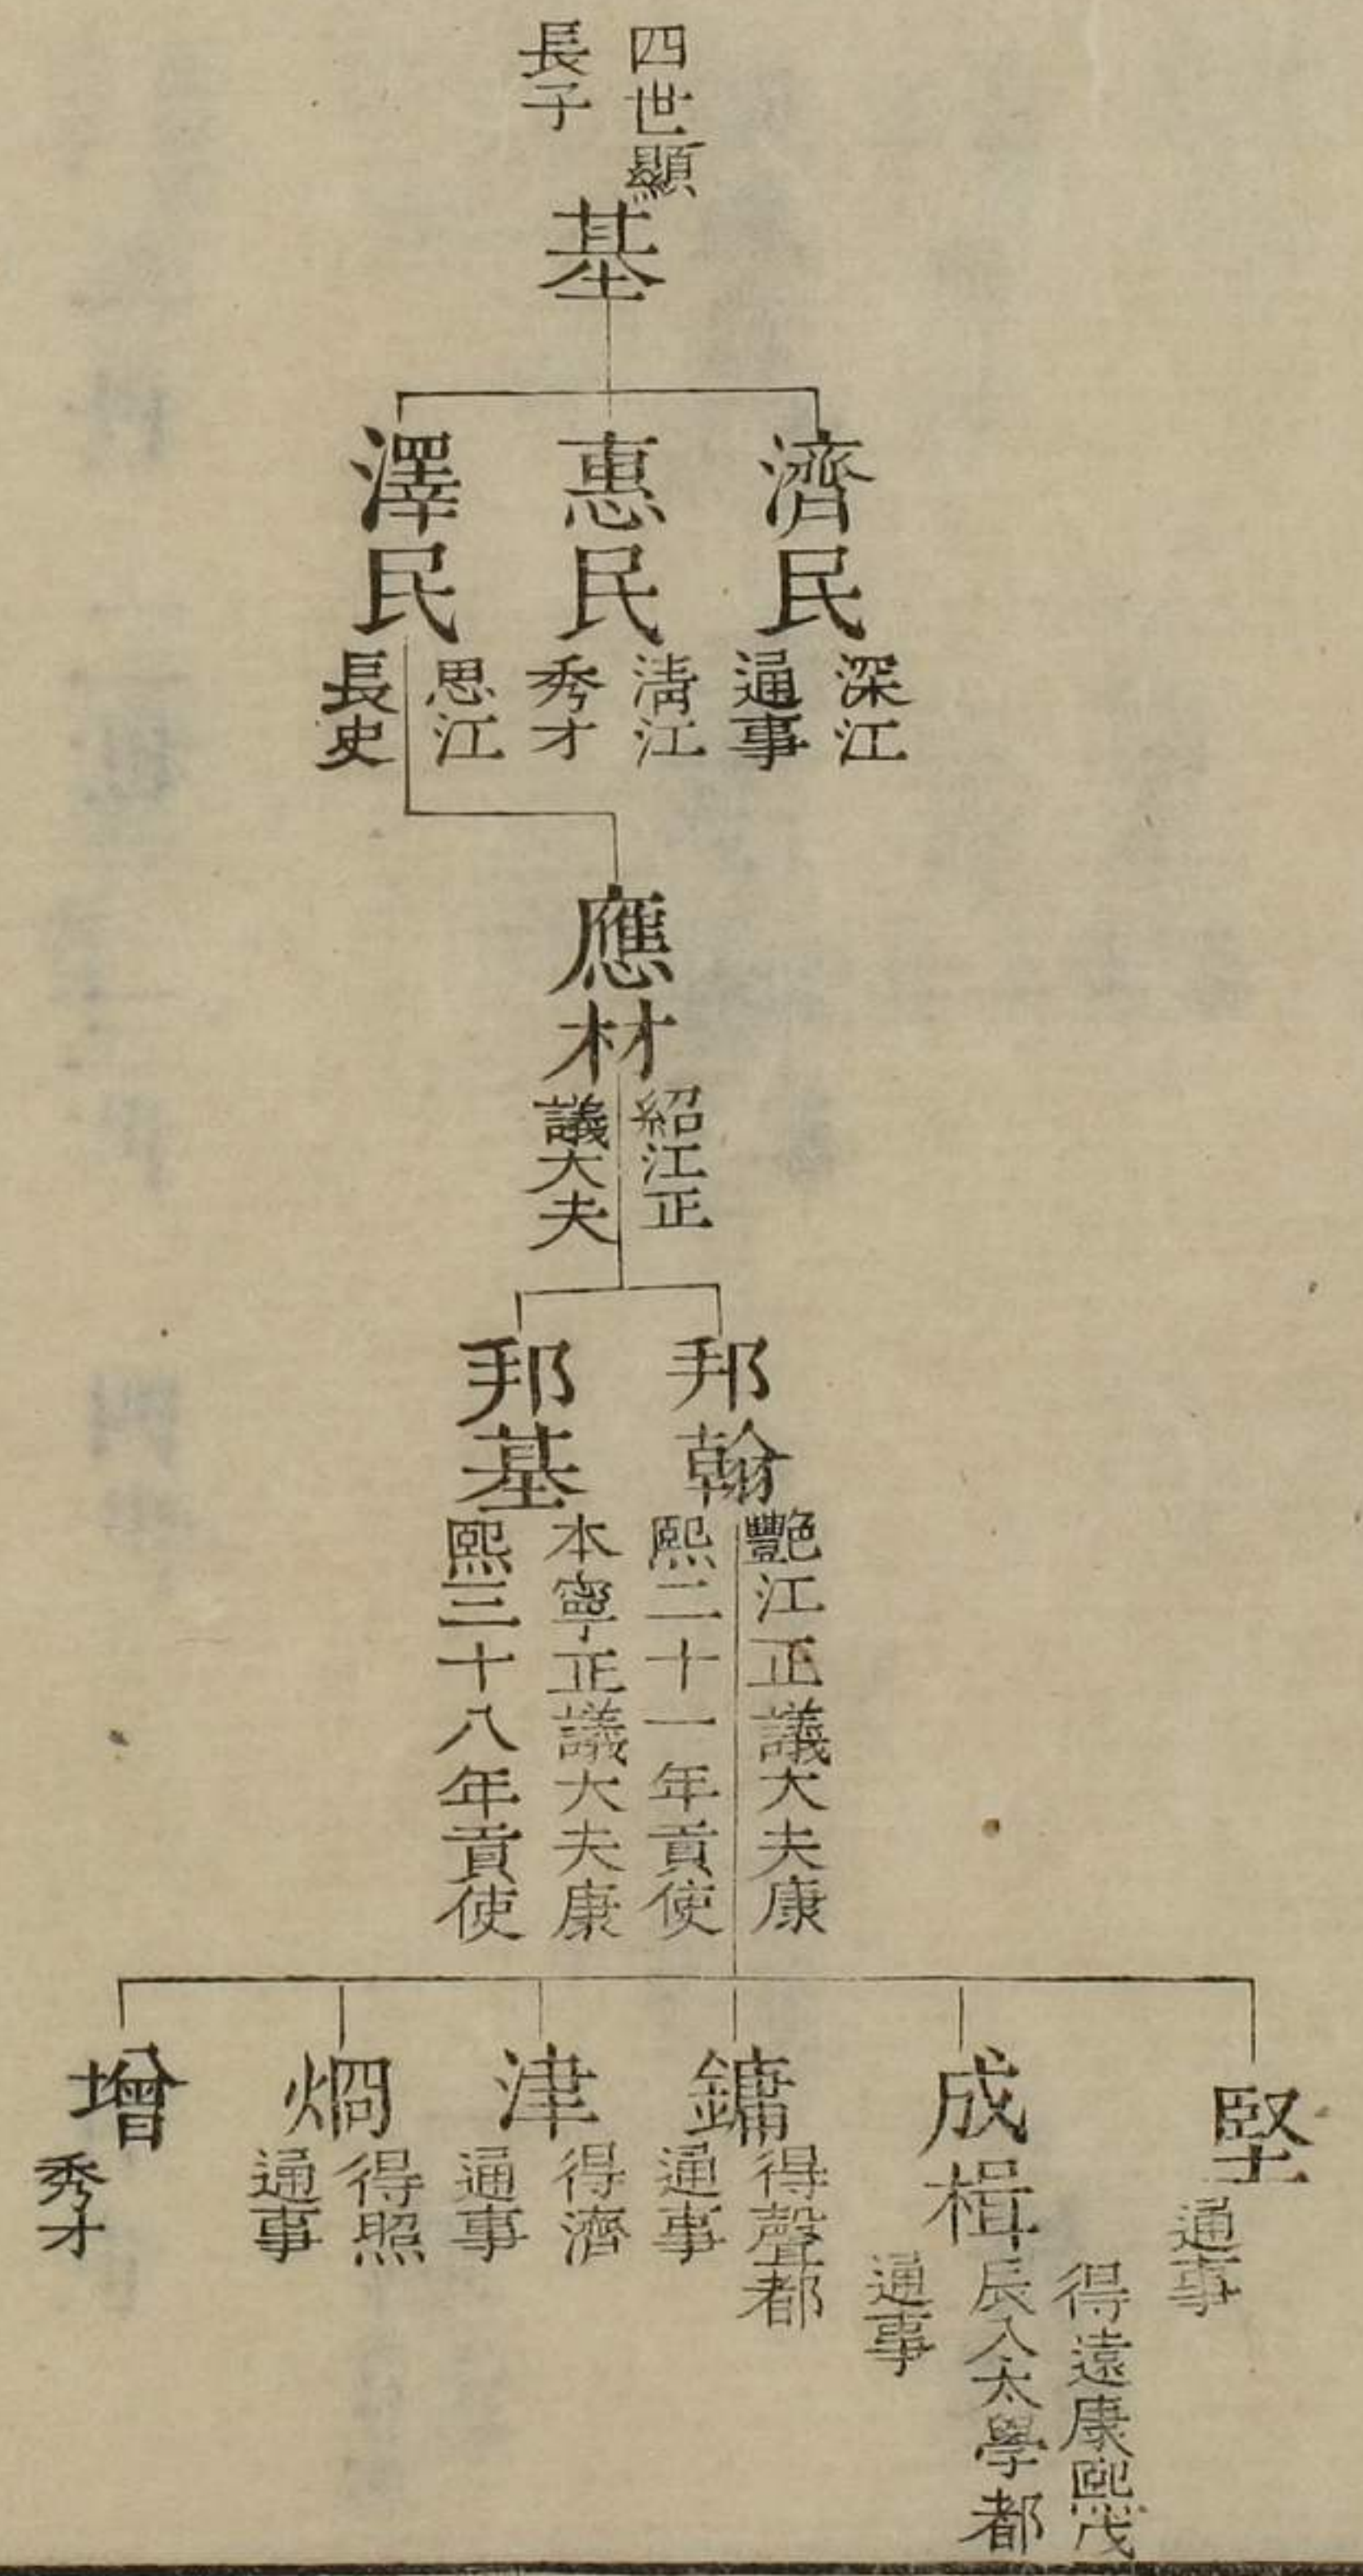 四世顯
長子
基
濟民
深江
通事
惠民
淸江
秀才
澤民
思江
長史
應材
紹江正
議大夫
邦翰
艷江正議大夫康
熙二十一年貢使
邦基
本寧正議大夫康
熙三十八年貢使
堅
通事
成楫
得遠康熙戊
辰入太學都
通事
鏞
得聲都
通事
津
得濟
通事
烱
得照
通事
增
秀才